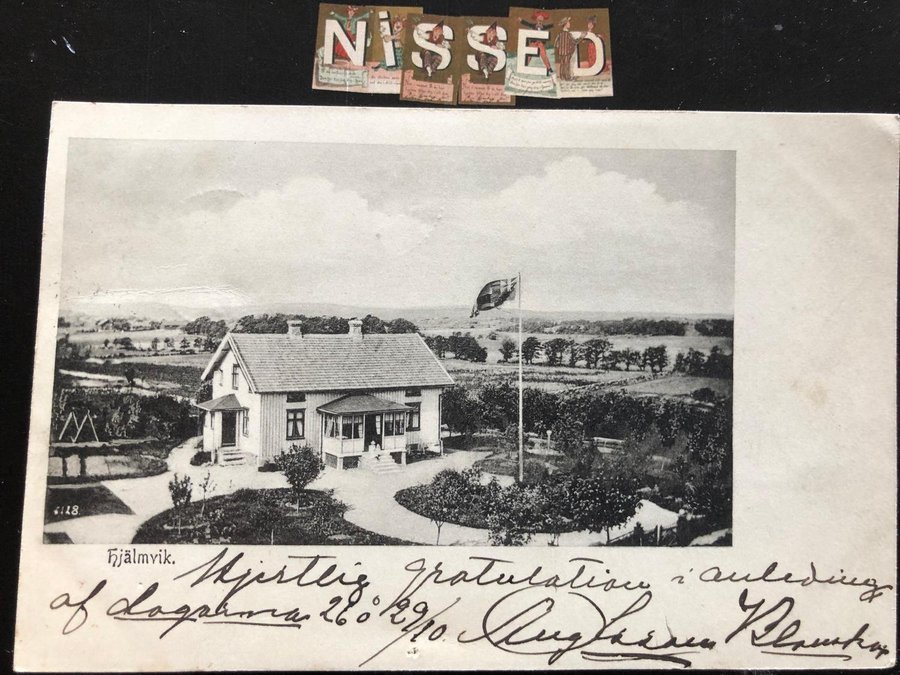 NiSSED
6128
Hjälmvik.
Hjertlig gratulation i anledning
af dagarna 26 o 29/10. Aug